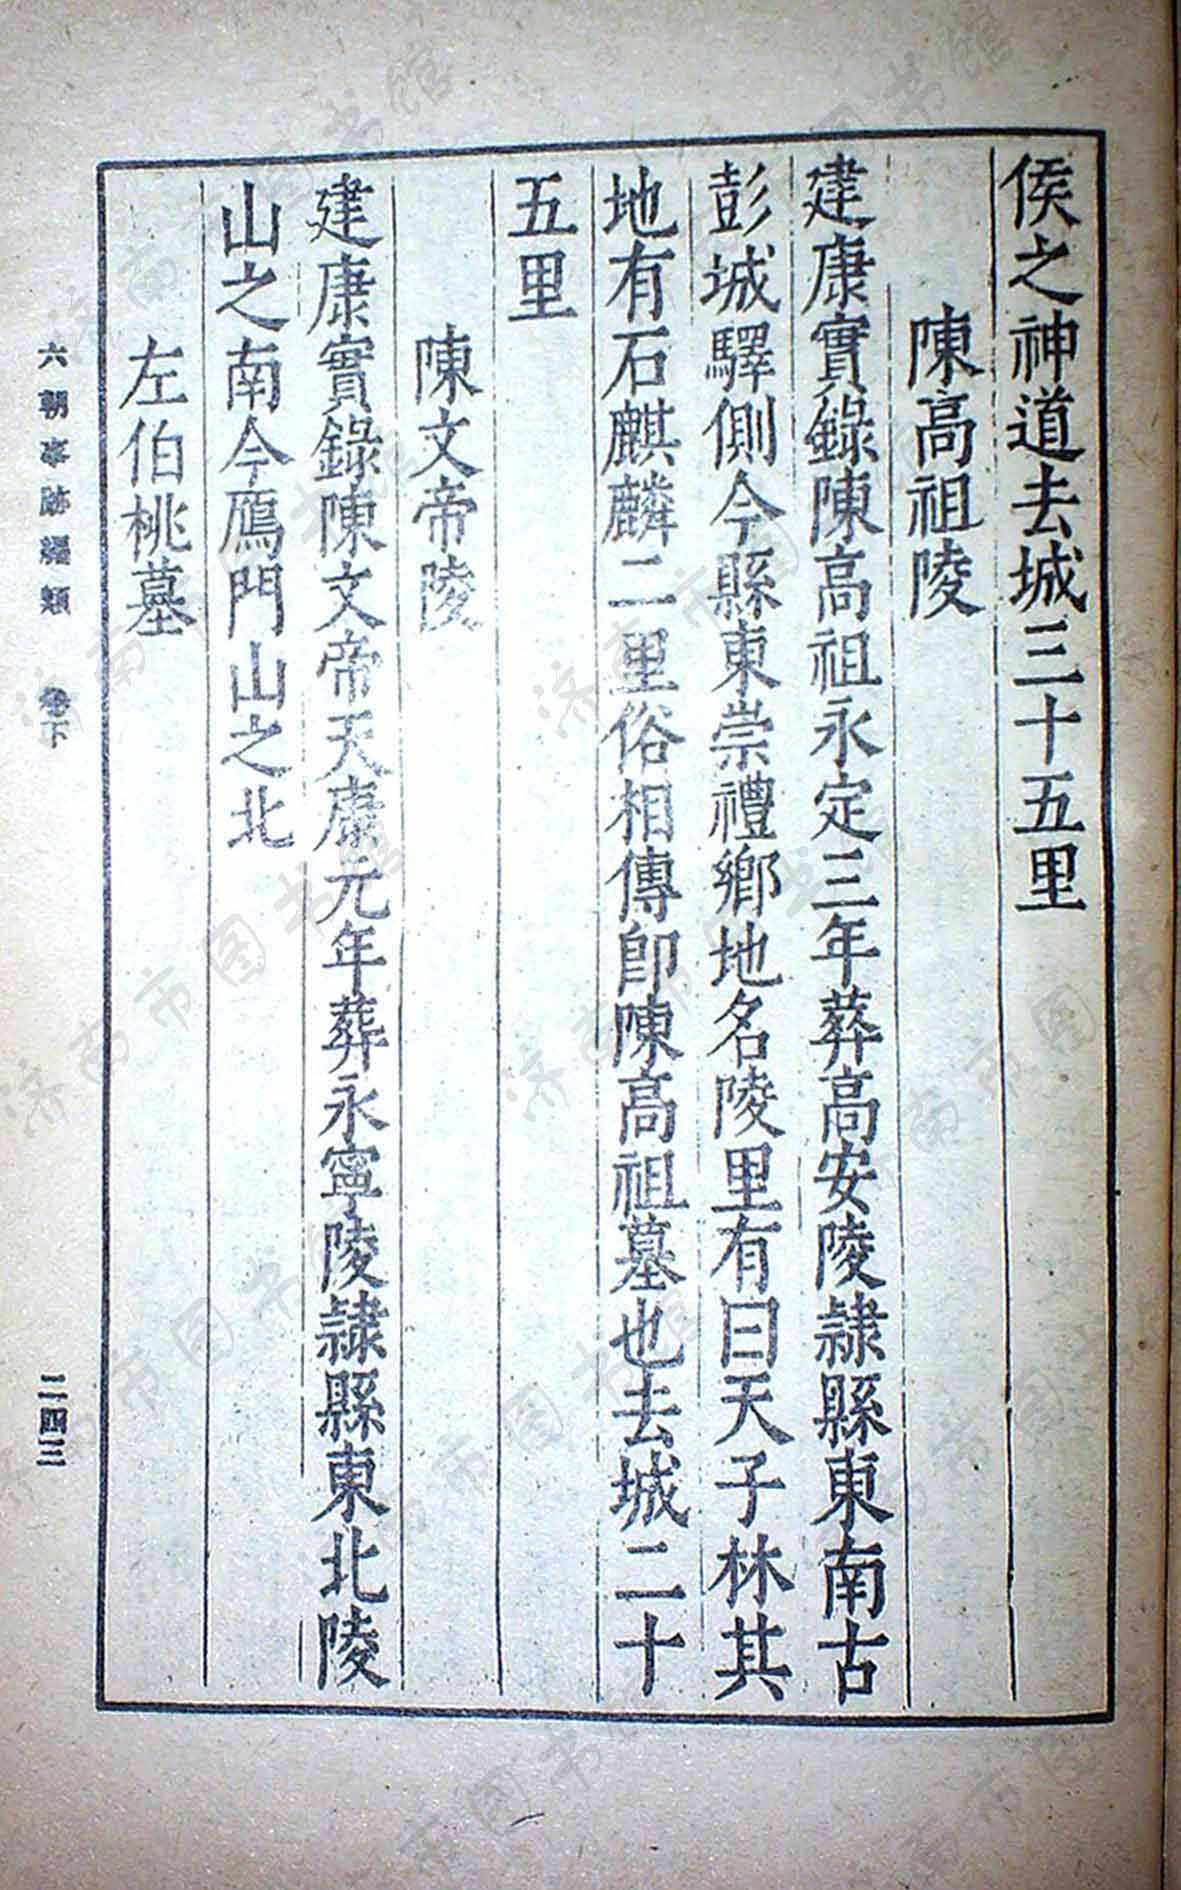 侯之神道去城三十五里
陳高祖陵
建康實錄陳高祖永定三年葬高安陵隷縣東南古
彭城驛側今縣東崇禮鄉地名陵里有曰天子林其
地有石麒麟二里俗相傳卽陳高祖墓也去城二十
五里
陳文帝陵
建康實錄陳文帝天康元年葬永寧陵隷縣東北陵
山之南今鴈門山之北
左伯桃墓
六朝事跡編類 卷下
二四三
济南市图书馆